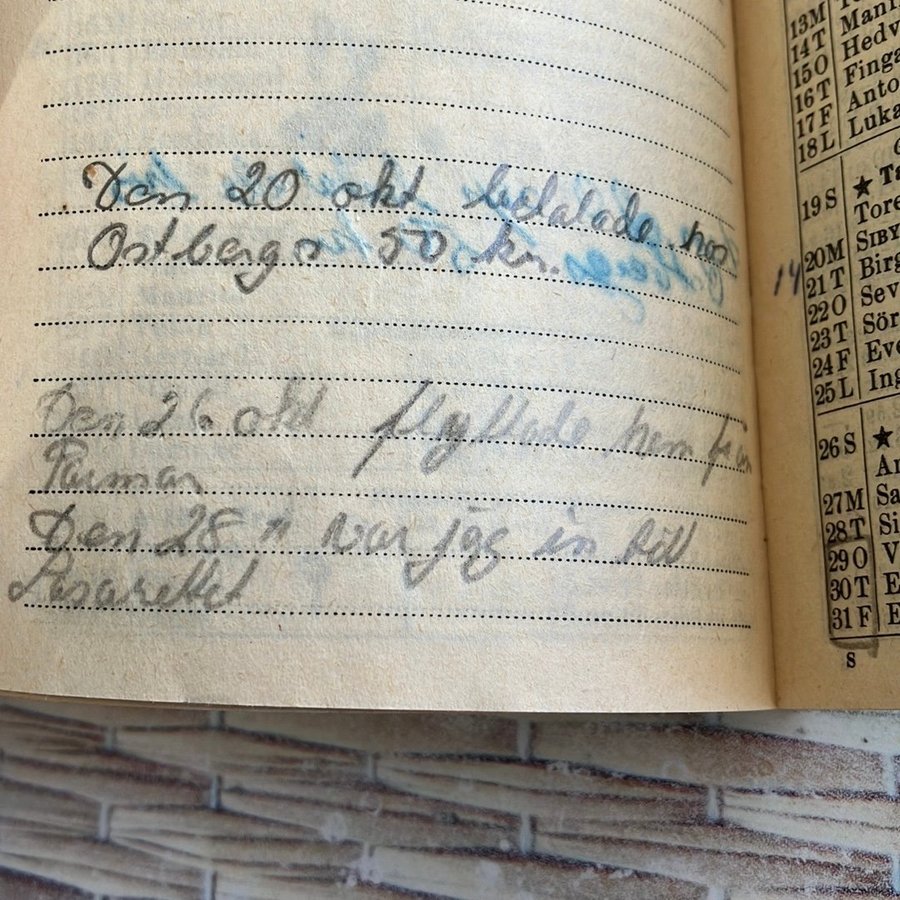 Den 20 okt betalade hos
Östbergs 50 kr.
Den 26 okt flyttade hem från
Den 28 " var jag in till
Lasarettet
13 M
14 T Hedv
15 O Finga
16 T Anto
17 F Luka
18 L
★ Ta
19 S Tore
20 M SIBY
21 T Birg
14
22 O Sev
23 T Sör
24 F Eve
25 L Ing
26 S ★
27 M Sa
28 T Si
29 O V
30 T E
31 F E
S